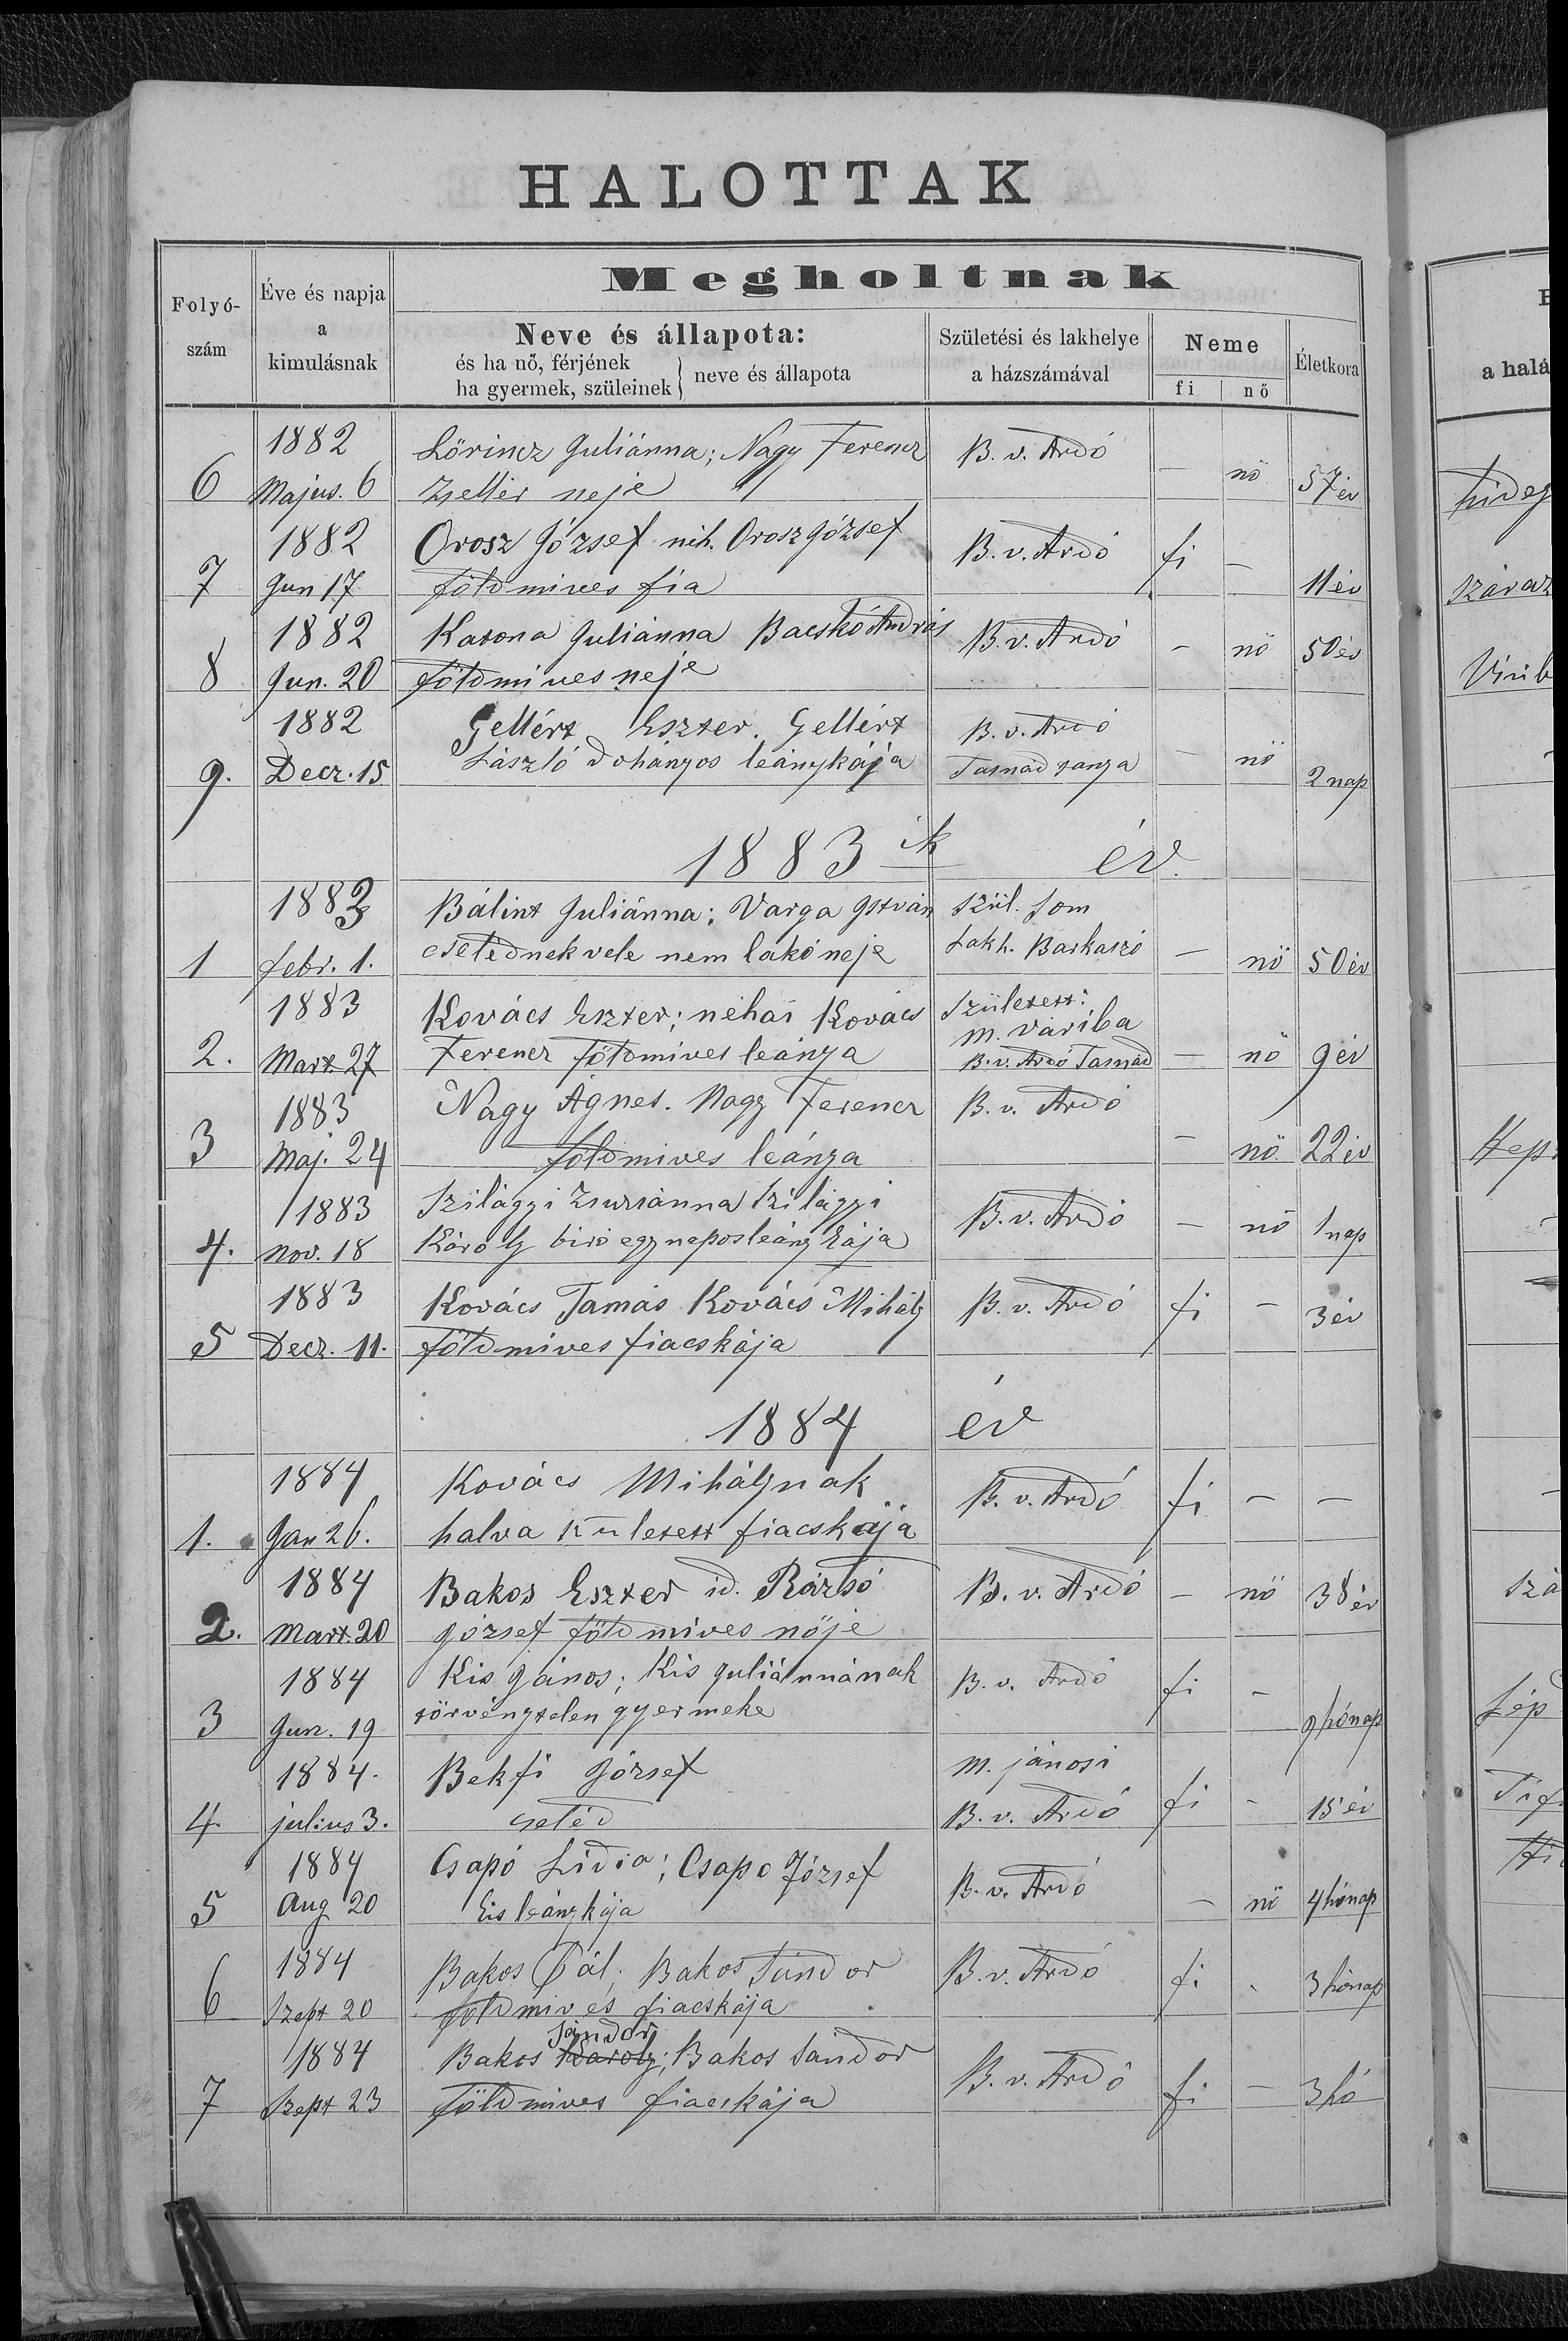 HALOTTAK
Folyó-
szám
Éve és napja
a
kimulásnak
Megholtnak
Neve és állapota:
és ha nő, férjének
ha gyermek, szüleinek
neve és állapota
Születési és lakhelye
a házszámával
Neme
fi nő
Életkora
1882 Lőrincz Juliánna; Nagy Ferencz B. v. Ardó
6 Majus. 6 zsellér neje — nő 57 év
1882 Orosz József néh. Orosz József B. v. Ardó fi —
7 Jun 17 földmives fia 11 év
1882 Katona Juliánna Bacskó András B. v. Ardó - nő 50 év
8 Jun. 20 földmives neje
1882 Gellért Eszter. Gellért B. v. Ardó
9. Decz. 15 László dohányos leánykája Tasnád tanya — nő 2 nap
1883 ik év
1883 Bálint Juliánna; Varga István Szül. Som
1 febr. 1. cselédnek vele nem lakó neje Lakh. Barkaszó — nő 50 év
1883 Kovács Eszter; néhai Kovács Született:
m. váriba
2. Mart. 27 Ferencz földmives leánya B. v. Ardó Tasnád — nő 9 év
1883 Nagy Ágnes. Nagy Ferencz B. v. Ardó
3 Maj. 24 földmives leánya — nő 22 év
1883 Szilágyi Zsuzsánna Szilágyi B. v. Ardó — nő 1 nap
4. nov. 18 Károly biró egy napos leánykája
1883 Kovács Tamás Kovács Mihály B. v. Ardó fi — 3 év
5 Decz. 11. földmives fiacskája
1884 év
1884 Kovács Mihálynak B. v. Ardó fi — —
1. Jan 26. halva született fiacskája
1884 Bakos Eszter id. Rázsó B. v. Ardó — nő 38 év
2. Mart. 20 József földmives nője
1884 Kis János; Kis Juliánnának B. v. Ardó fi —
3 Jun. 19 törvénytelen gyermeke 9 hónap
1884. Bekfi József M. jánosi
4. julius 3. cseléd B. v. Ardó fi - 15 év
1884 Csapó Lidia; Csapo József B. v. Ardó
5 Aug 20 kis leánykája — nő 4 hónap
1884 Bakos Pál; Bakos Sándor B. v. Ardó fi - 3 hónap
6 Szept 20 földmivés fiacskája
Sándor
1884 Bakos Károly; Bakos Sándor B. v. Ardó fi — 3 hó
7 Szept 23 földmives fiacskája
a halá
hideg
száraz